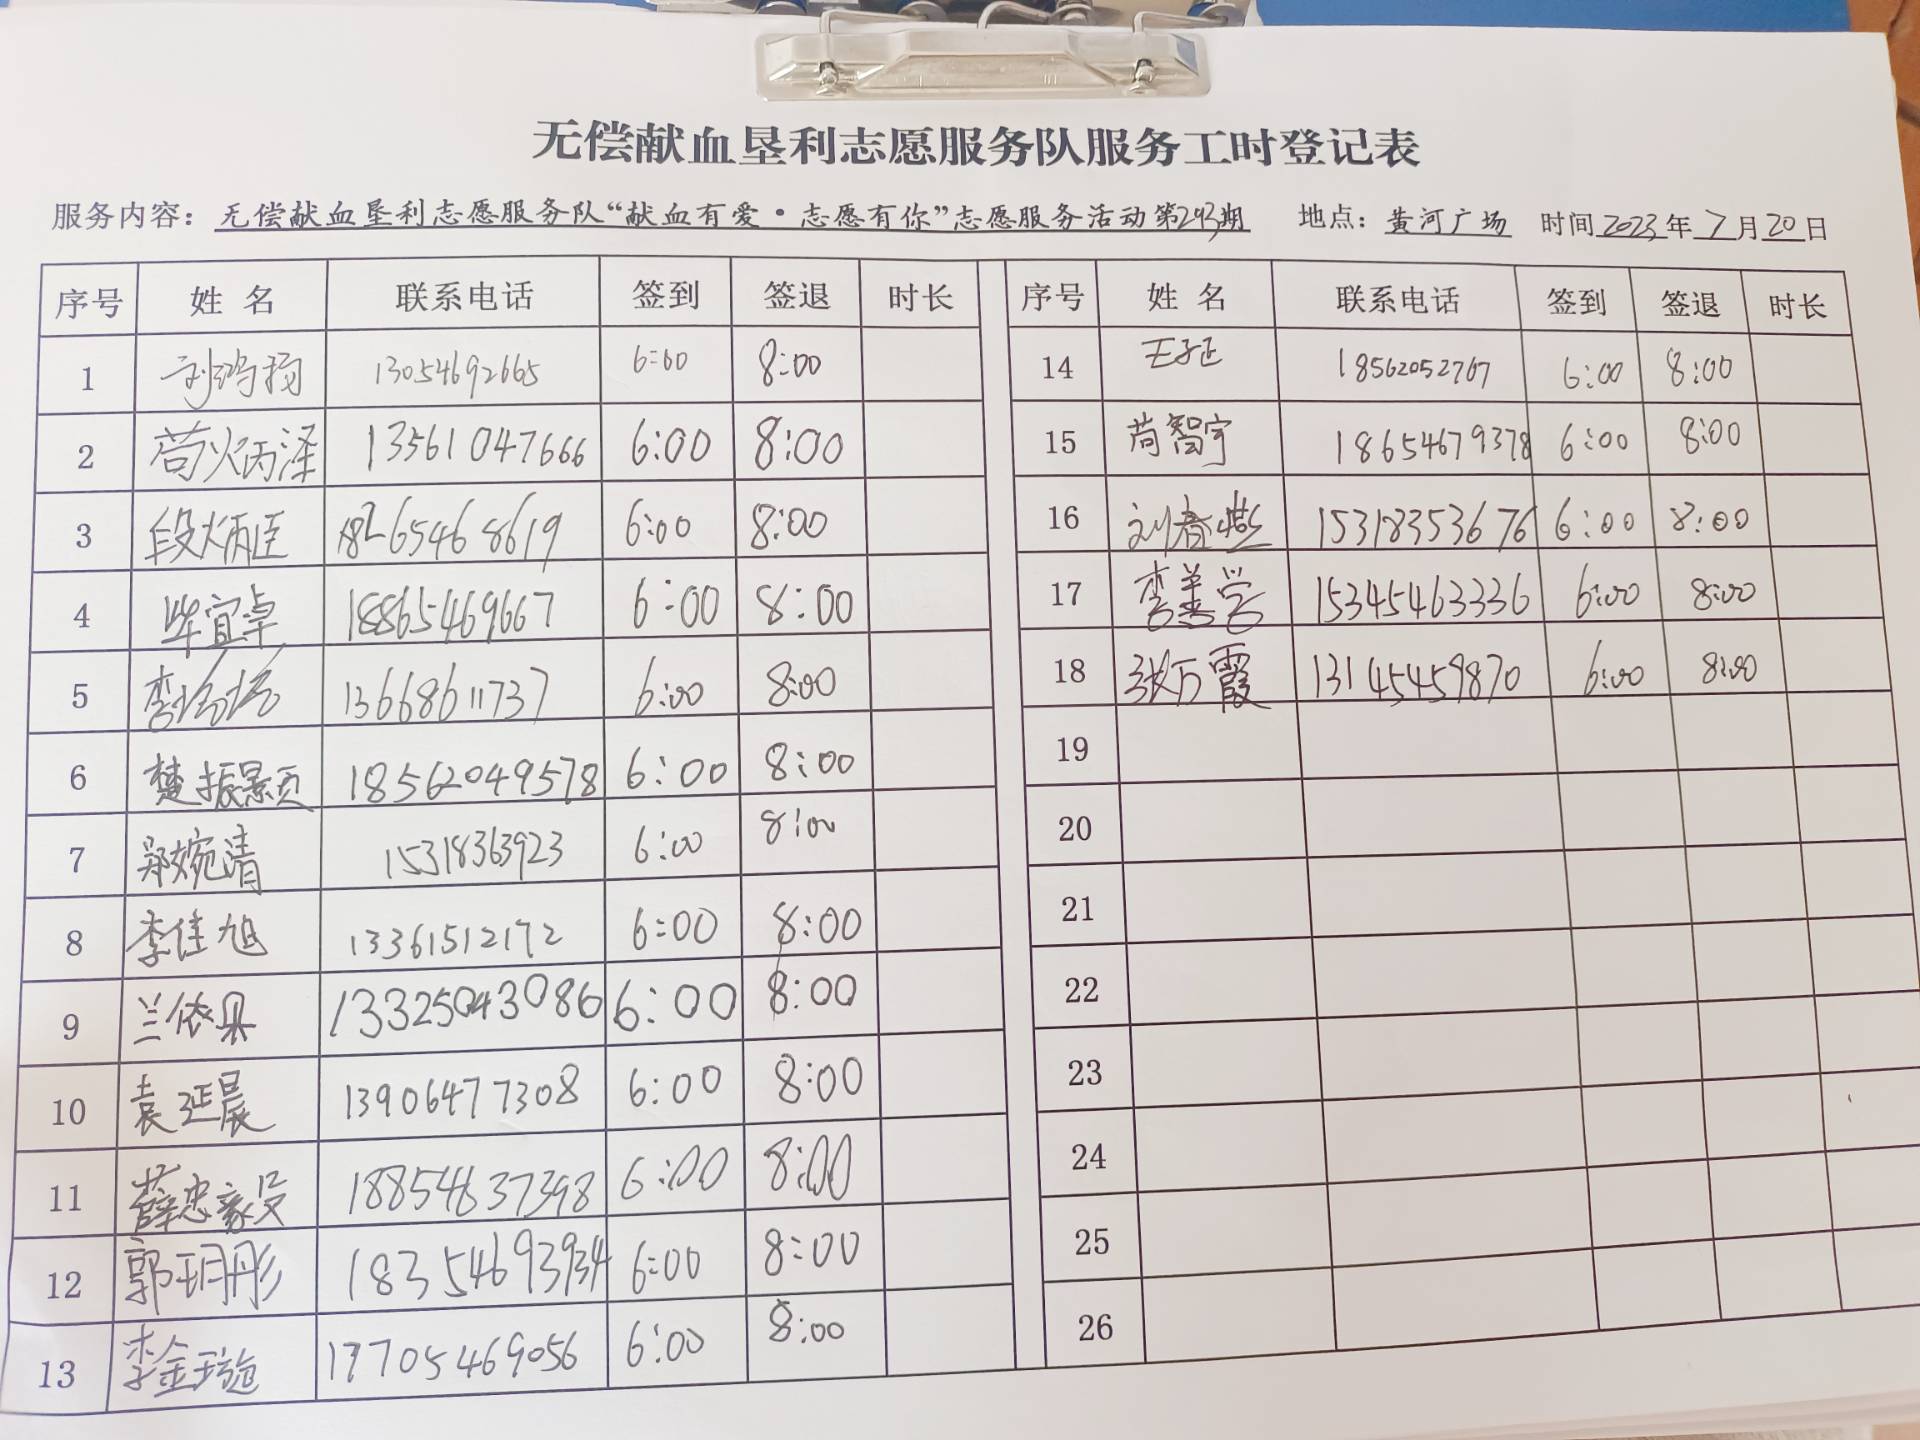 无偿献血垦利志愿服务队服务工时登记表
服务内容：无偿献血垦利志愿服务队“献血有爱·志愿有你”志愿服务活动第293期 地点：黄河广场 时间2023年7月20日
序号 姓名 联系电话 签到 签退 时长 序号 姓名 联系电话 签到 签退 时长
1 刘鸿扬 13054692665 6:00 8:00 14 王子正 18562052767 6:00 8:00
2 苟炳泽 13561047666 6:00 8:00 15 苟智宇 18654679378 6:00 8:00
3 段炳匡 18265468619 6:00 8:00 16 刘春燕 15318353676 6:00 8:00
4 毕宜卓 18865469667 6:00 8:00 17 李美学 15345463336 6:00 8:00
5 李 13668611737 6:00 8:00 18 张万霞 13145459870 6:00 8:00
6 楚振颢 18562049578 6:00 8:00 19
7 郑婉清 15318363923 6:00 8:00 20
8 李佳旭 13361512172 6:00 8:00 21
9 兰依果 13325043086 6:00 8:00 22
10 袁延晨 13906477308 6:00 8:00 23
11 薛忠毅 18854637398 6:00 8:00 24
12 郭玥彤 18354693934 6:00 8:00 25
13 李金璇 17705469056 6:00 8:00 26